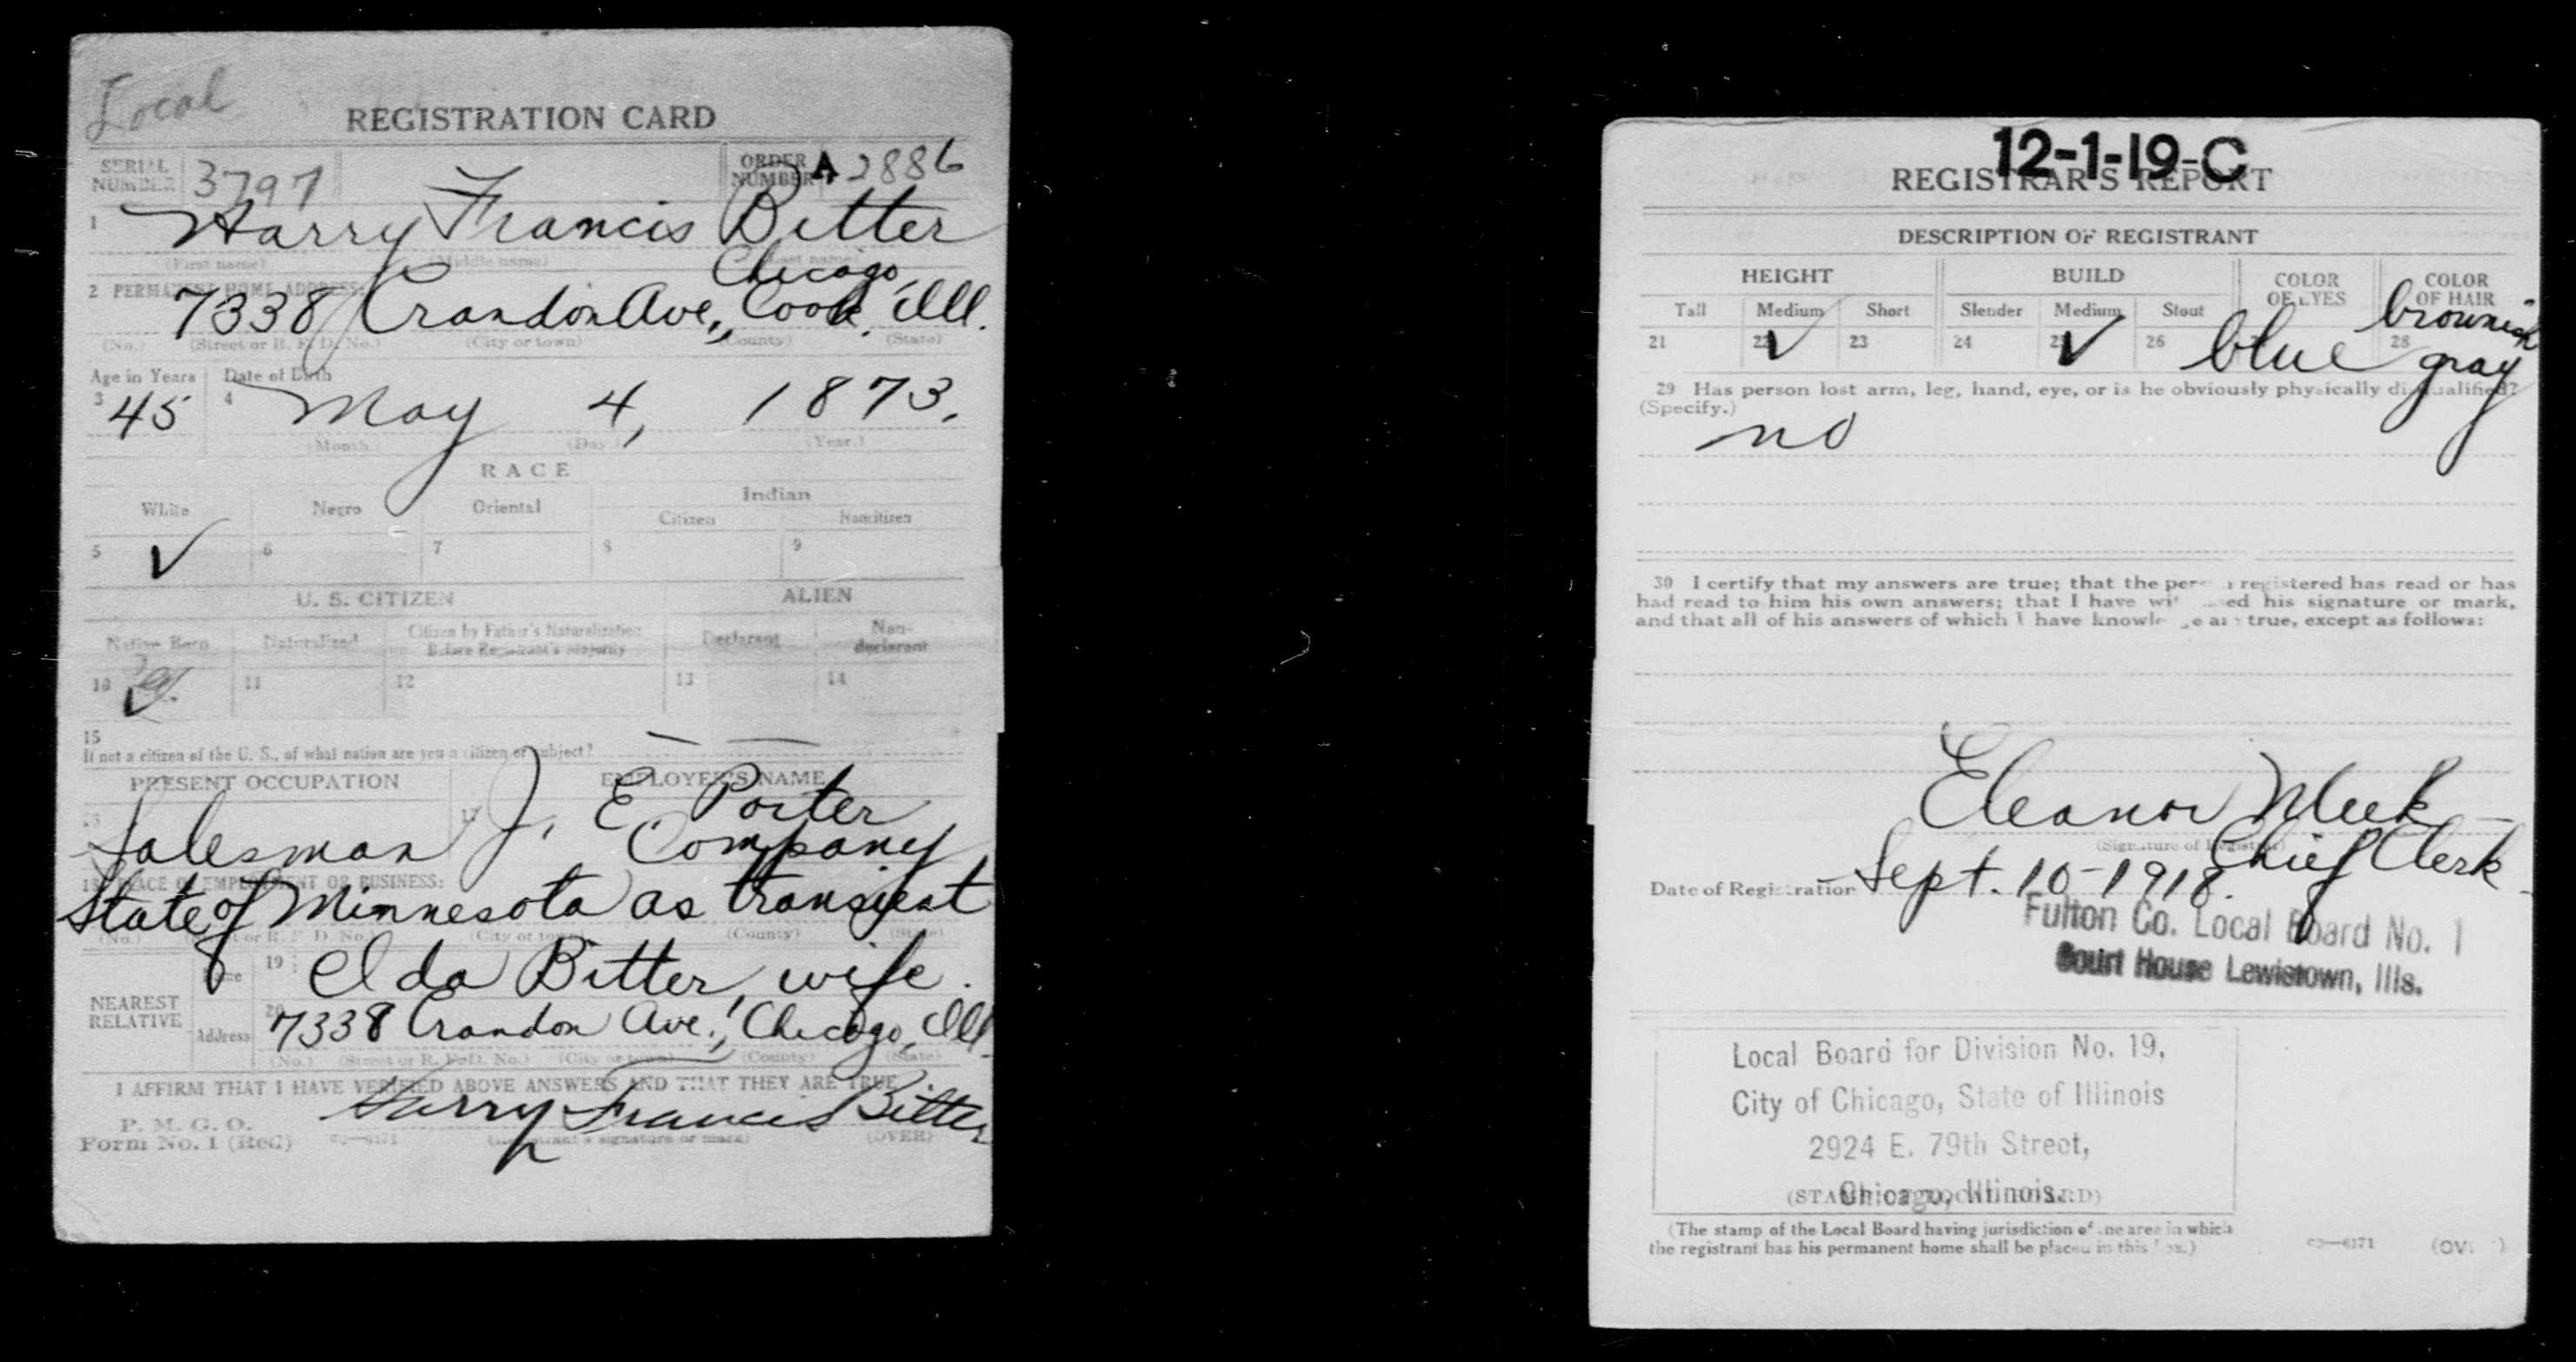 Local
REGISTRATION CARD
SERIAL NUMBER 3797 ORDER NUMBER A 2886
1 Harry Francis Bitter
(First name) (Middle name) (Last name)
Chicago,
2 PERMANENT HOME ADDRESS:
7338 Crandon Ave., Cook, Ill.
(No.) (Street or R. F. D. No.) (City or town) (County) (State)
Age in Years Date of Birth
3 45 4 May 4, 1873.
(Month.) (Day.) (Year.)
RACE
White Negro Oriental Indian
Citizen Noncitizen
5 ✓ 6 7 8 9
U. S. CITIZEN ALIEN
Native Born Naturalized Citizen by Father's Naturalization Before Registrant's Majority Declarant Non-declarant
10 ✓ 11 12 13 14
15
If not a citizen of the U. S., of what nation are you a citizen or subject? — —
PRESENT OCCUPATION EMPLOYER'S NAME
16 Salesman 17 J. E. Porter
Company
18 PLACE OF EMPLOYMENT OR BUSINESS:
State of Minnesota as transient
(No.) (Street or R. F. D. No.) (City or town) (County) (State)
NEAREST RELATIVE Name 19 Elda Bitter, wife.
Address 20 7338 Crandon Ave., Chicago, Ill.
(No.) (Street or R. F. D. No.) (City or town) (County) (State)
I AFFIRM THAT I HAVE VERIFIED ABOVE ANSWERS AND THAT THEY ARE TRUE
P. M. G. O.
Form No. 1 (Red) 03—6171 Harry Francis Bitter
(Registrant's signature or mark) (OVER)
12-1-19-C
REGISTRAR'S REPORT
DESCRIPTION OF REGISTRANT
HEIGHT BUILD COLOR OF EYES COLOR OF HAIR
Tall Medium Short Slender Medium Stout
21 22 ✓ 23 24 25 ✓ 26 blue 28 brownish gray
29 Has person lost arm, leg, hand, eye, or is he obviously physically disqualified?
(Specify.)
no
30 I certify that my answers are true; that the person registered has read or has
had read to him his own answers; that I have witnessed his signature or mark,
and that all of his answers of which I have knowledge are true, except as follows:
Eleanor Meek
(Signature of Registrar)
Chief Clerk
Date of Registration Sept. 10-1918.
Fulton Co. Local Board No. 1
Court House Lewistown, Ills.
Local Board for Division No. 19,
City of Chicago, State of Illinois
2924 E. 79th Street,
Chicago, Illinois.
(STAMP OF LOCAL BOARD)
(The stamp of the Local Board having jurisdiction of the area in which
the registrant has his permanent home shall be placed in this box.)
03—6171 (OVER)